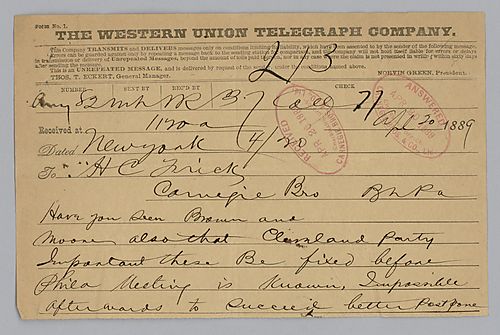 FORM No. 1.
THE WESTERN UNION TELEGRAPH COMPANY.
This Company TRANSMITS and DELIVERS messages only on conditions limiting its liability, which have been assented to by the sender of the following message.
Errors can be guarded against only by repeating a message back to the sending station for comparison, and the company will not hold itself liable for errors or delays
in transmission or delivery of Unrepeated Messages, beyond the amount of tolls paid thereon, nor in any case where the claim is not presented in writing within sixty days
after sending the message.
This is an UNREPEATED MESSAGE, and is delivered by request of the sender, under the conditions named above.
THOS. T. ECKERT, General Manager. NORVIN GREEN, President.
43
NUMBER SENT BY REC'D BY CHECK
82 Collect
Received at 1120a Apl 20 1889
Dated New York 4/20
To H C Frick
Carnegie Bro
Have you seen Brown and
Moore also that Cleveland Party
Important these Be fixed before
Phila Meeting is Known, Impossible
afterwards to succeed better Postpone
RECEIVED
APR 20 1889
ANSWERED
APR